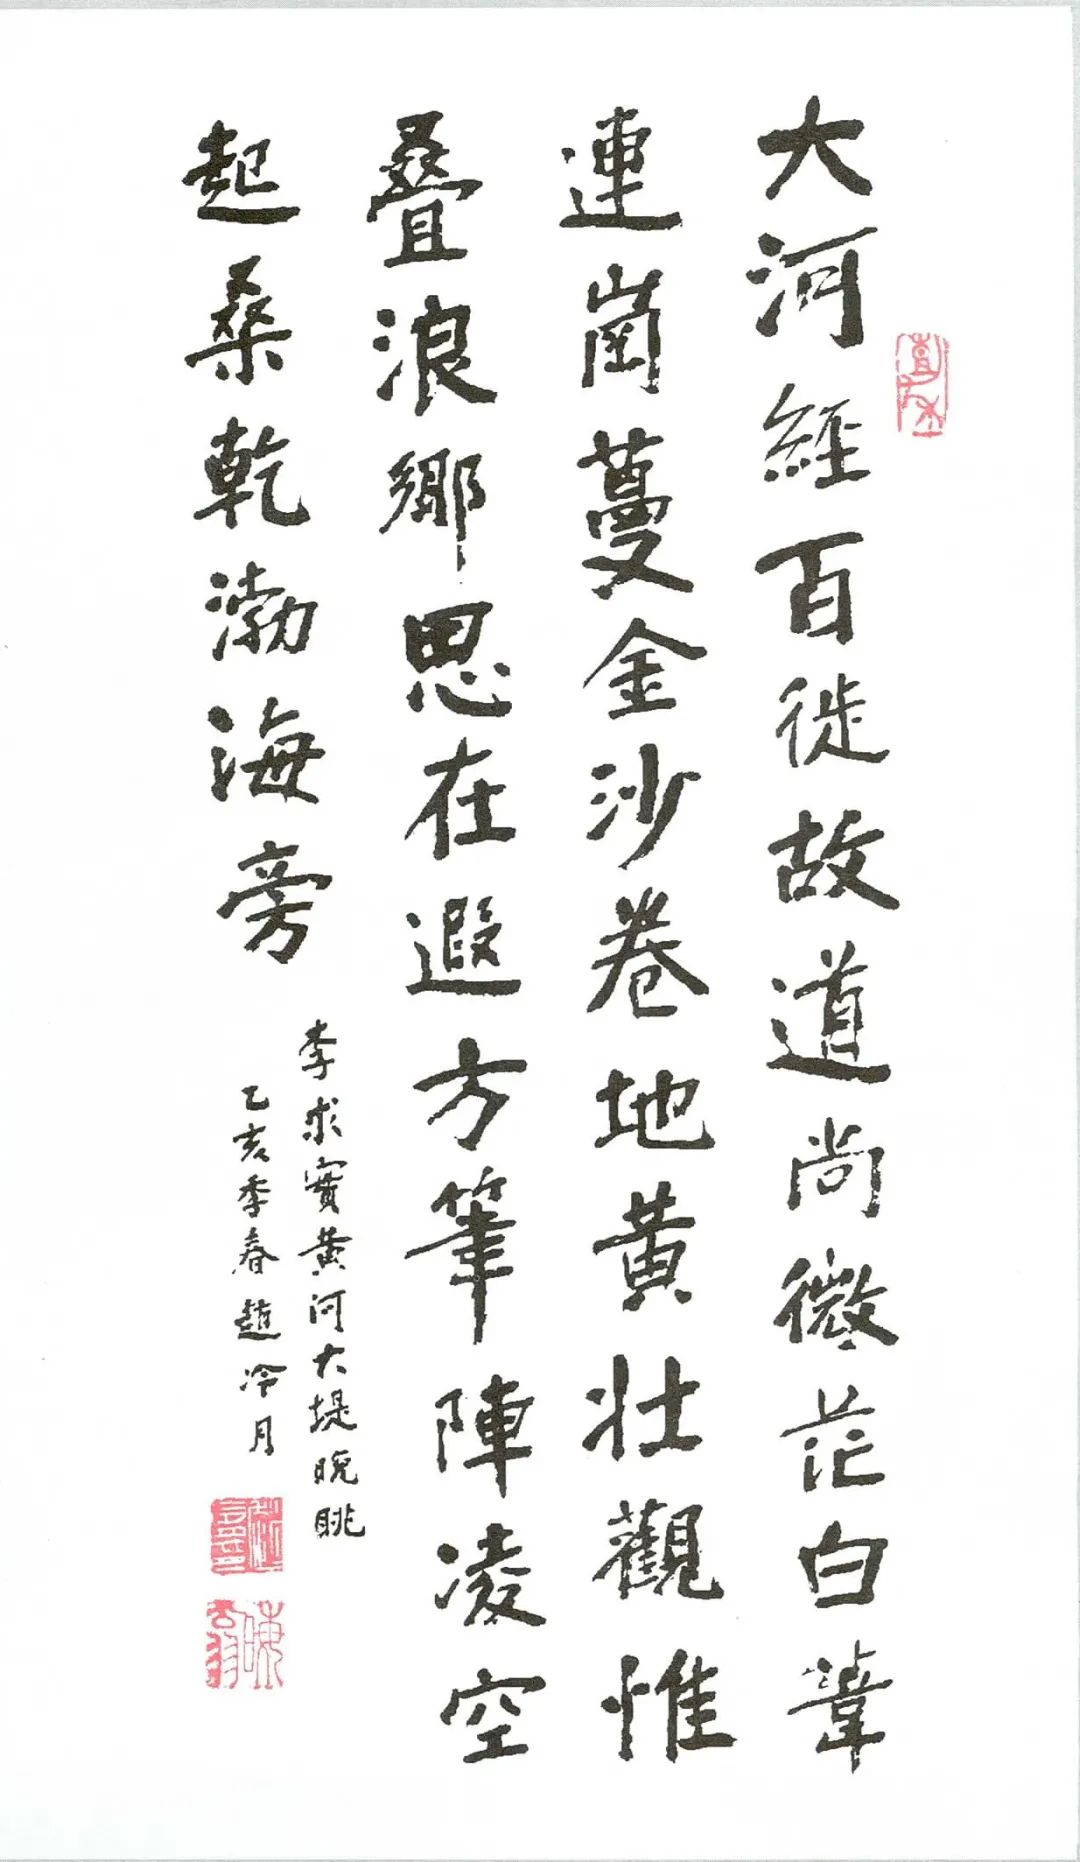 大河經百徙故道尚微茫白葦
連崗蔓金沙卷地黃壯觀惟
疊浪鄉思在遐方筆陣凌空
起桑乾渤海旁
李求實黃河大堤晚眺
乙亥季春趙冷月